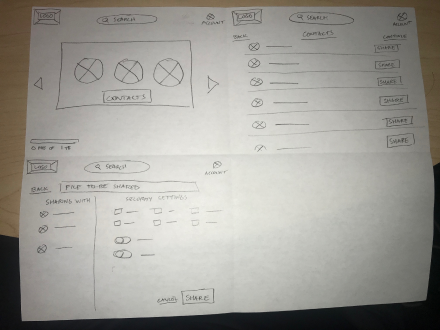 LOGO
SEARCH
ACCOUNT
CONTACTS
LOGO
SEARCH
ACCOUNT
BACK
CONTACTS
SHARE
SHARE
SHARE
SHARE
SHARE
SHARE
LOGO
SEARCH
ACCOUNT
BACK
FILE TO BE SHARED
SHARING WITH
SECURITY SETTINGS
CANCEL
SHARE